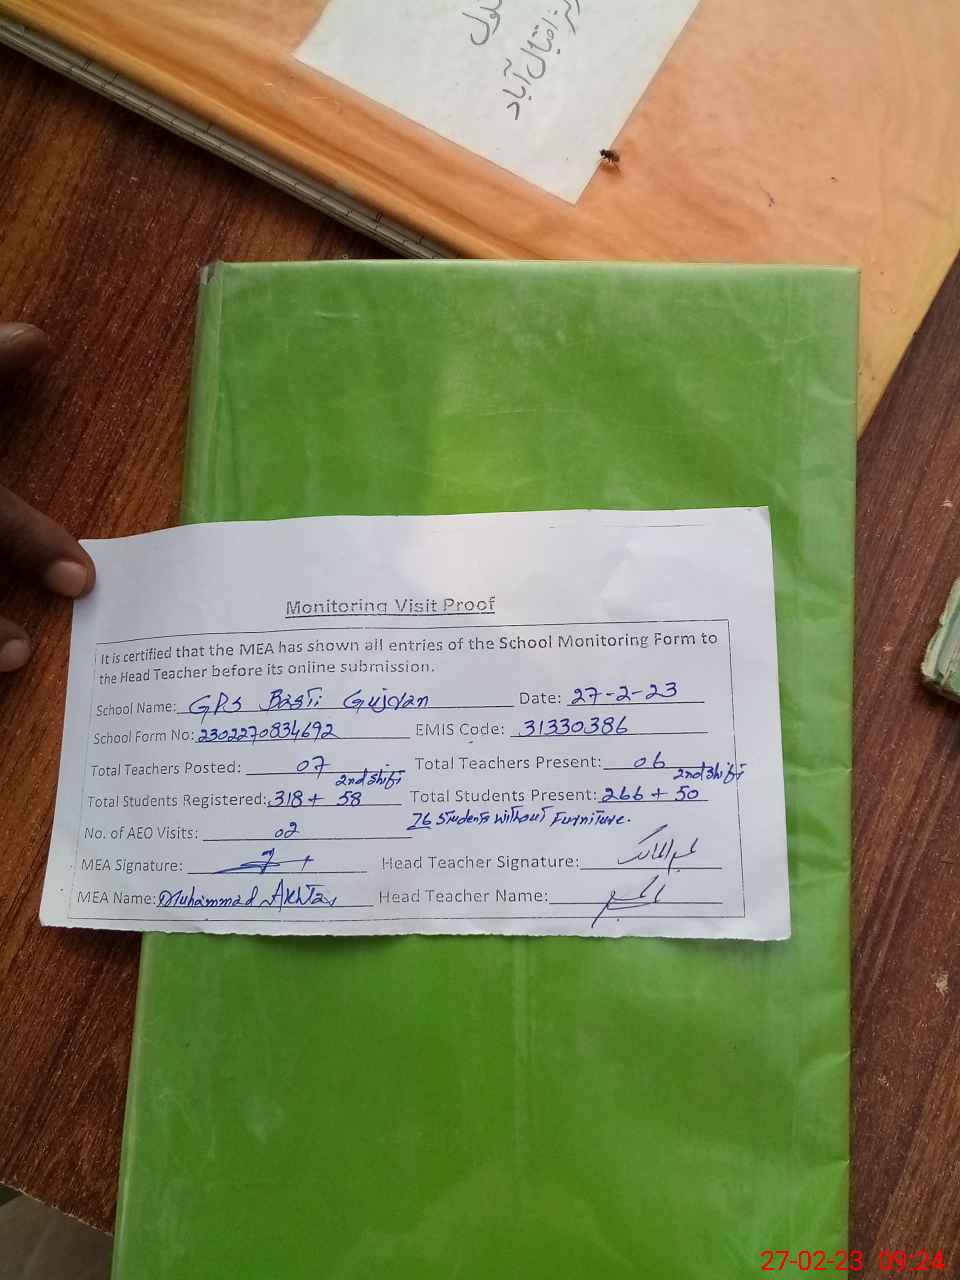 اقبال آباد
Monitoring Visit Proof
It is certified that the MEA has shown all entries of the School Monitoring Form to
the Head Teacher before its online submission.
School Name: GPS Basti Gujran Date: 27-2-23
School Form No: 2302270834692 EMIS Code: 31330386
Total Teachers Posted: 07 Total Teachers Present: 06
2nd shift 2nd shift
Total Students Registered: 318 + 58 Total Students Present: 266 + 50
No. of AEO Visits: 02 76 Students without Furniture.
MEA Signature: Head Teacher Signature:
MEA Name: Muhammad Akhtar Head Teacher Name:
27-02-23 09:24